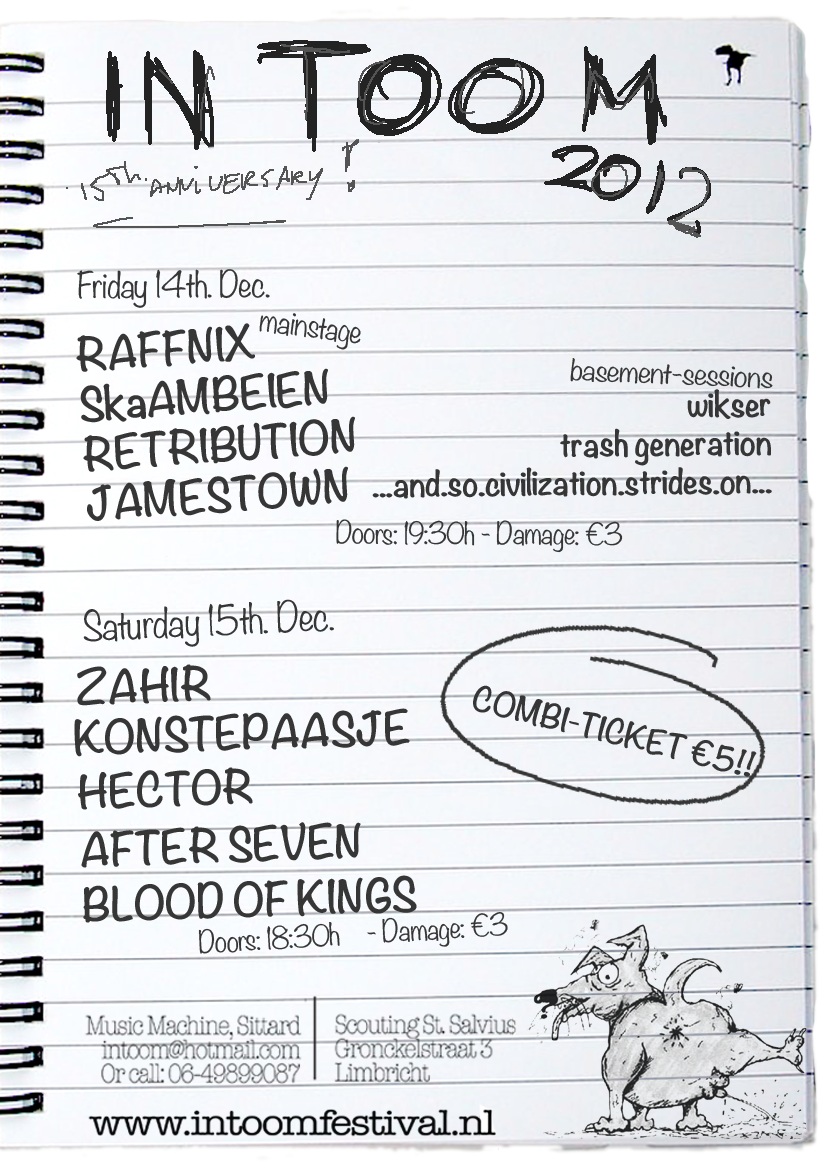 IN TOOM
2012
15th. ANNIVERSARY!
Friday 14th. Dec.
mainstage
RAFFNIX
SkaAMBEIEN
RETRIBUTION
JAMESTOWN
basement-sessions
wikser
trash generation
...and.so.civilization.strides.on...
Doors: 19:30h - Damage: €3
Saturday 15th. Dec.
ZAHIR
KONSTEPAASJE
HECTOR
AFTER SEVEN
BLOOD OF KINGS
COMBI-TICKET €5!!
Doors: 18:30h - Damage: €3
Music Machine, Sittard
intoom@hotmail.com
Or call: 06-49899087
Scouting St. Salvius
Gronckelstraat 3
Limbricht
www.intoomfestival.nl